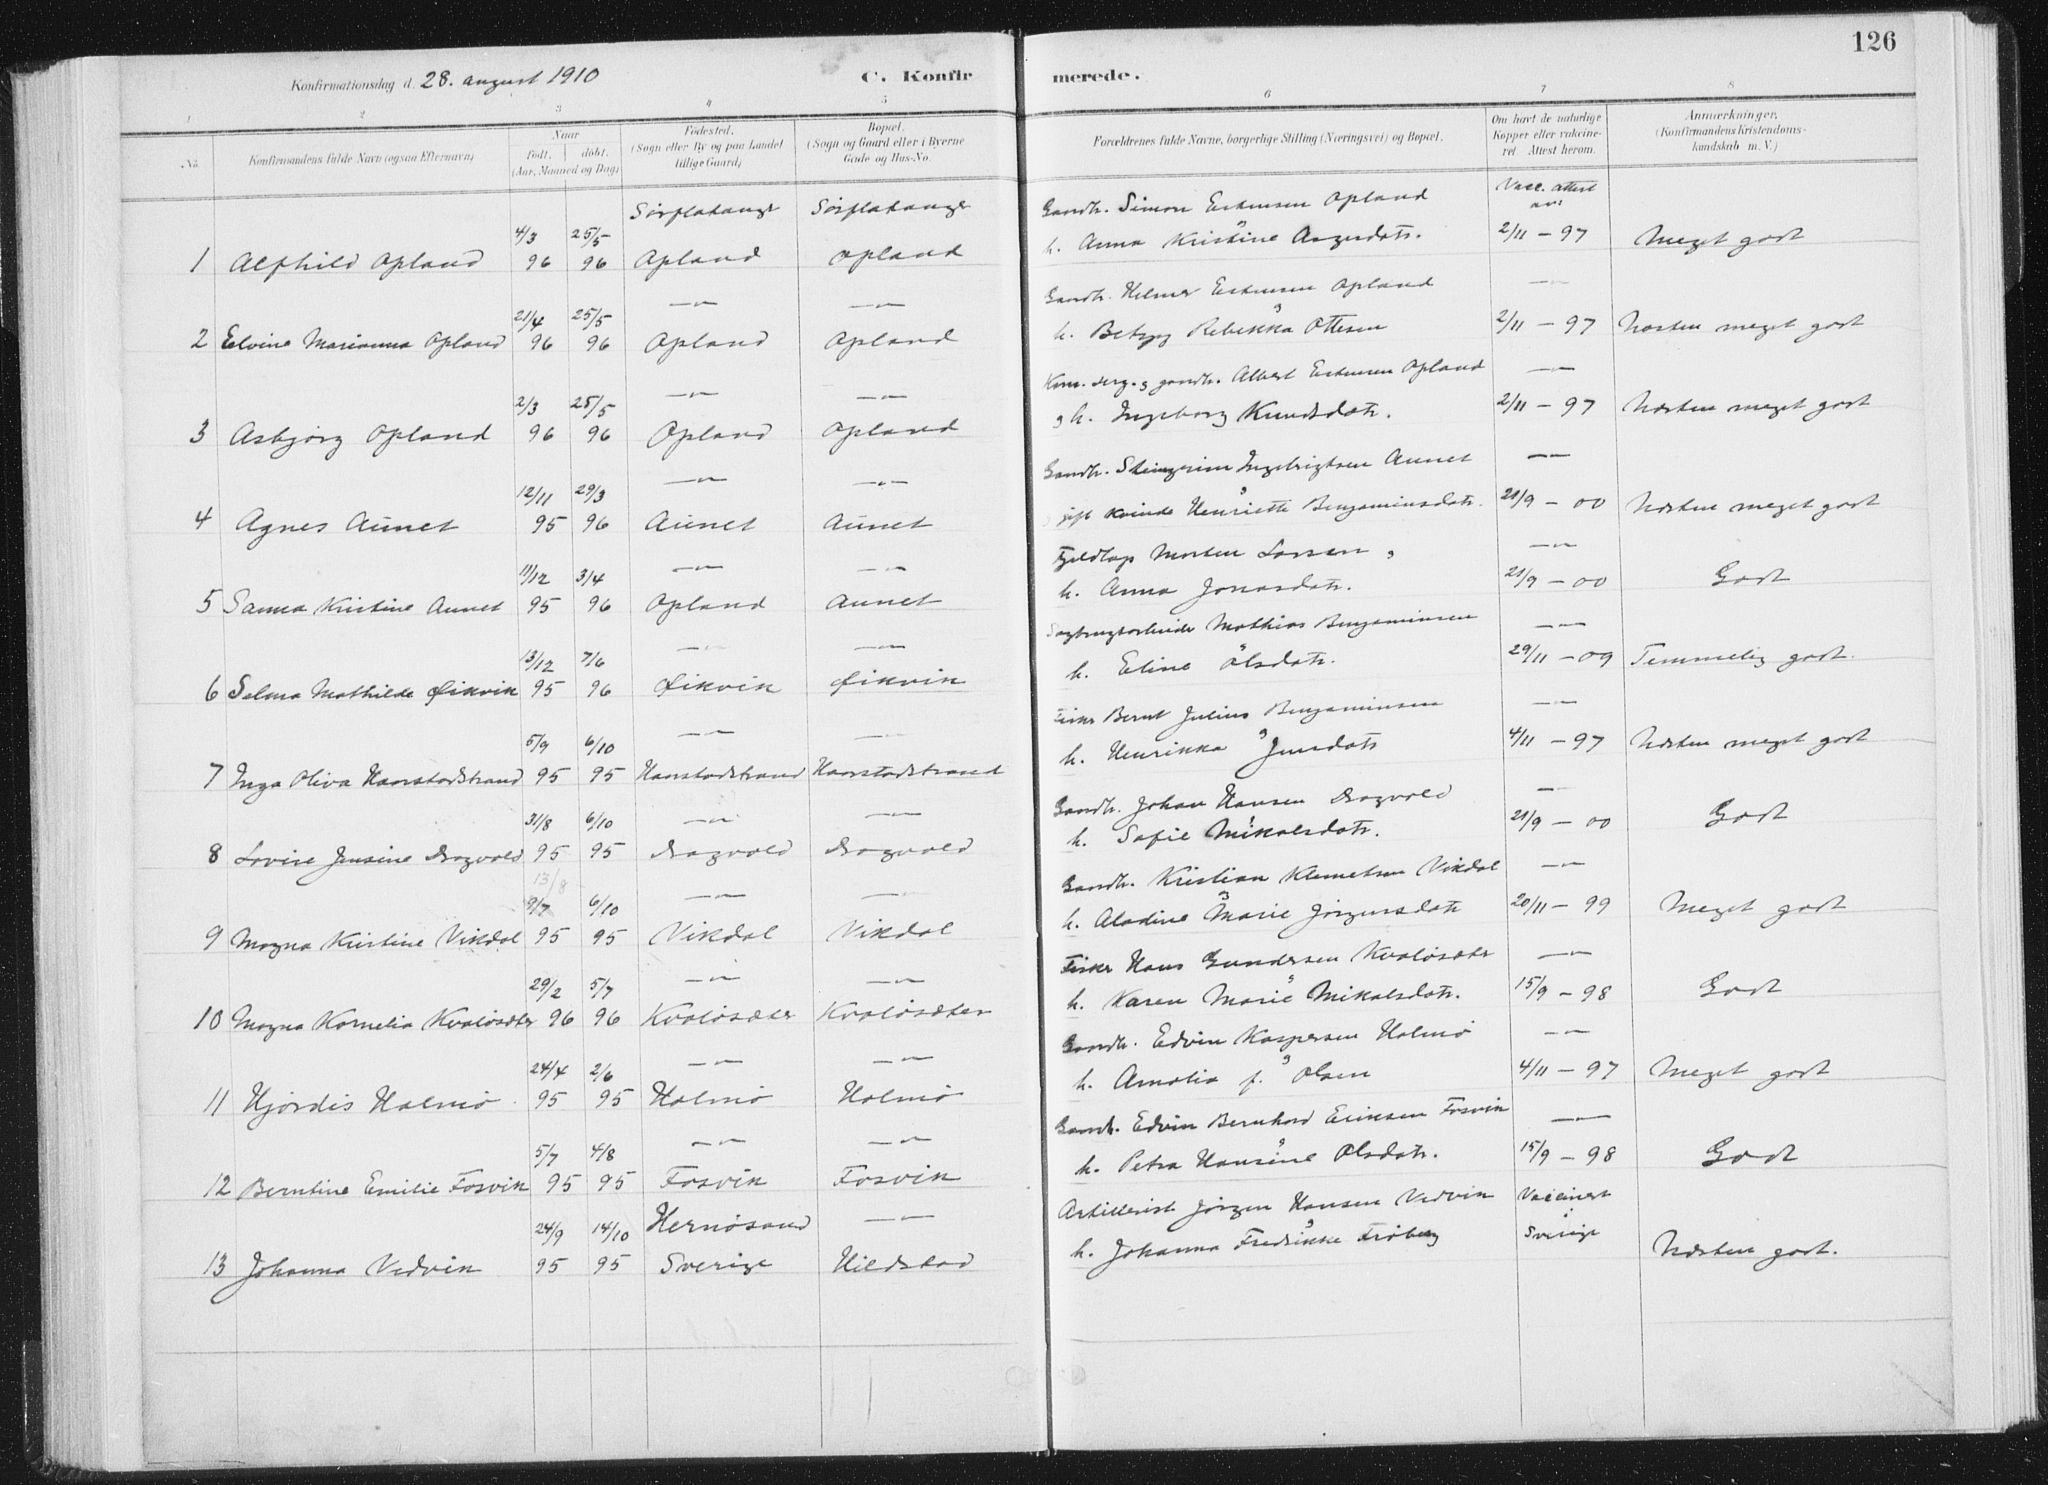 126
Konfirmationsdag d. 28. august 1910
C. Konfirmerede.
1 2 3 4 5 6 7 8
No.
Konfirmandens fulde Navn (ogsaa Efternavn)
Naar
født. døbt.
(Aar, Maaned og Dag)
Fødested.
(Sogn eller By og paa Landet
tillige Gaard)
Bopæl.
(Sogn og Gaard eller i Byerne
Gade og Hus-No.
Forældrenes fulde Navne, borgerlige Stilling (Næringsvei) og Bopæl.
Om havt de naturlige
Kopper eller vakcine-
ret. Attest herom.
Anmærkninger.
(Konfirmandens Kristendoms-
kundskab m. V.)
Sørflatanger Sørflatanger Gaardb. Simon Opland Vacc. attest
4/3 25/5 h. Anna Kristine 2/11 - 97 Meget godt
1 Alfhild Opland 96 96 Opland Opland
—"— —"— Gaardb. Hilmer Opland —"—
21/4 25/5 h. Betzy Rebekka Ottesen 2/11 - 97 Næsten meget godt
2 Elvine Marianna Opland 96 96 Opland Opland
—"— —"— gaardb. Albert Opland —"—
2/3 25/5 h. Ingeborg Knudsdatr. 2/11 - 97 Næsten meget godt
3 Asbjørg Opland 96 96 Opland Opland
—"— —"— Gaardb. Steingrim Ingebrigtsen Aunet —"—
12/11 29/3 gift kvinde Henriette Benjaminsdatr. 21/9 - 00 Næsten meget godt
4 Agnes Aunet 95 96 Aunet Aunet
—"— —"— Fjeldlap Morten Larsen —"—
11/12 3/4 h. Anna Jonasdatr. 21/9 - 00 Godt
5 Sanna Kristine Aunet 95 96 Opland Aunet
—"— —"— Mathias Benjaminsen —"—
13/12 7/6 h. Eline Olsdatr. 29/11 - 09 Temmelig godt.
6 Selma Mathilde Øikvik 95 96 Øikvik Øikvik
—"— —"— Fisker Bernt Julius Benjaminsen —"—
5/9 6/10 h. Henrikka Jensdatr 4/11 - 97 Næsten meget godt
7 Inga Oliva Haarstadstrand 95 95 Haarstadstrand Haarstadstrand
—"— —"— Gaardb. Johan Hansen Dragvold —"—
31/8 6/10 h. Sofie Mikalsdatr. 21/9 - 00 Godt
8 Lovise Jensine Dragvold 95 95 Dragvold Dragvold
13/8
—"— —"— Gaardb. Kristian Klemetsen Vikdal —"—
9/7 6/10 h. Aladine Marie Jørgensdatr 20/11 - 99 Meget godt
9 Magna Kristine Vikdal 95 95 Vikdal Vikdal
—"— —"— Fisker Hans Gundersen Kvaløsæter —"—
29/2 5/7 h. Karen Marie Mikalsdatr. 15/9 - 98 Godt
10 Magna Kornelia Kvaløsæter 96 96 Kvaløsæter Kvaløsæter
—"— —"— Gaardb. Edvin Kaspersen Halmø —"—
24/4 2/6 h. Amalia f. Olsen 4/11 - 97 Meget godt
11 Hjørdis Halmø 95 95 Halmø Halmø
—"— —"— Gaardb. Edvin Bernhard Eriksen Fosvik —"—
5/7 4/8 h. Petra Hansine Olsdatr. 15/9 - 98 Godt
12 Berntine Emilie Fosvik 95 95 Fosvik Fosvik
Hernøsand —"— Artillerist Jørgen Hansen Vedvik Vaccinert
24/9 14/10 h. Johanna Fredrikke Frøberg Sverige
13 Johanna Vedvik 95 95 Sverige Hildstad Næsten godt.